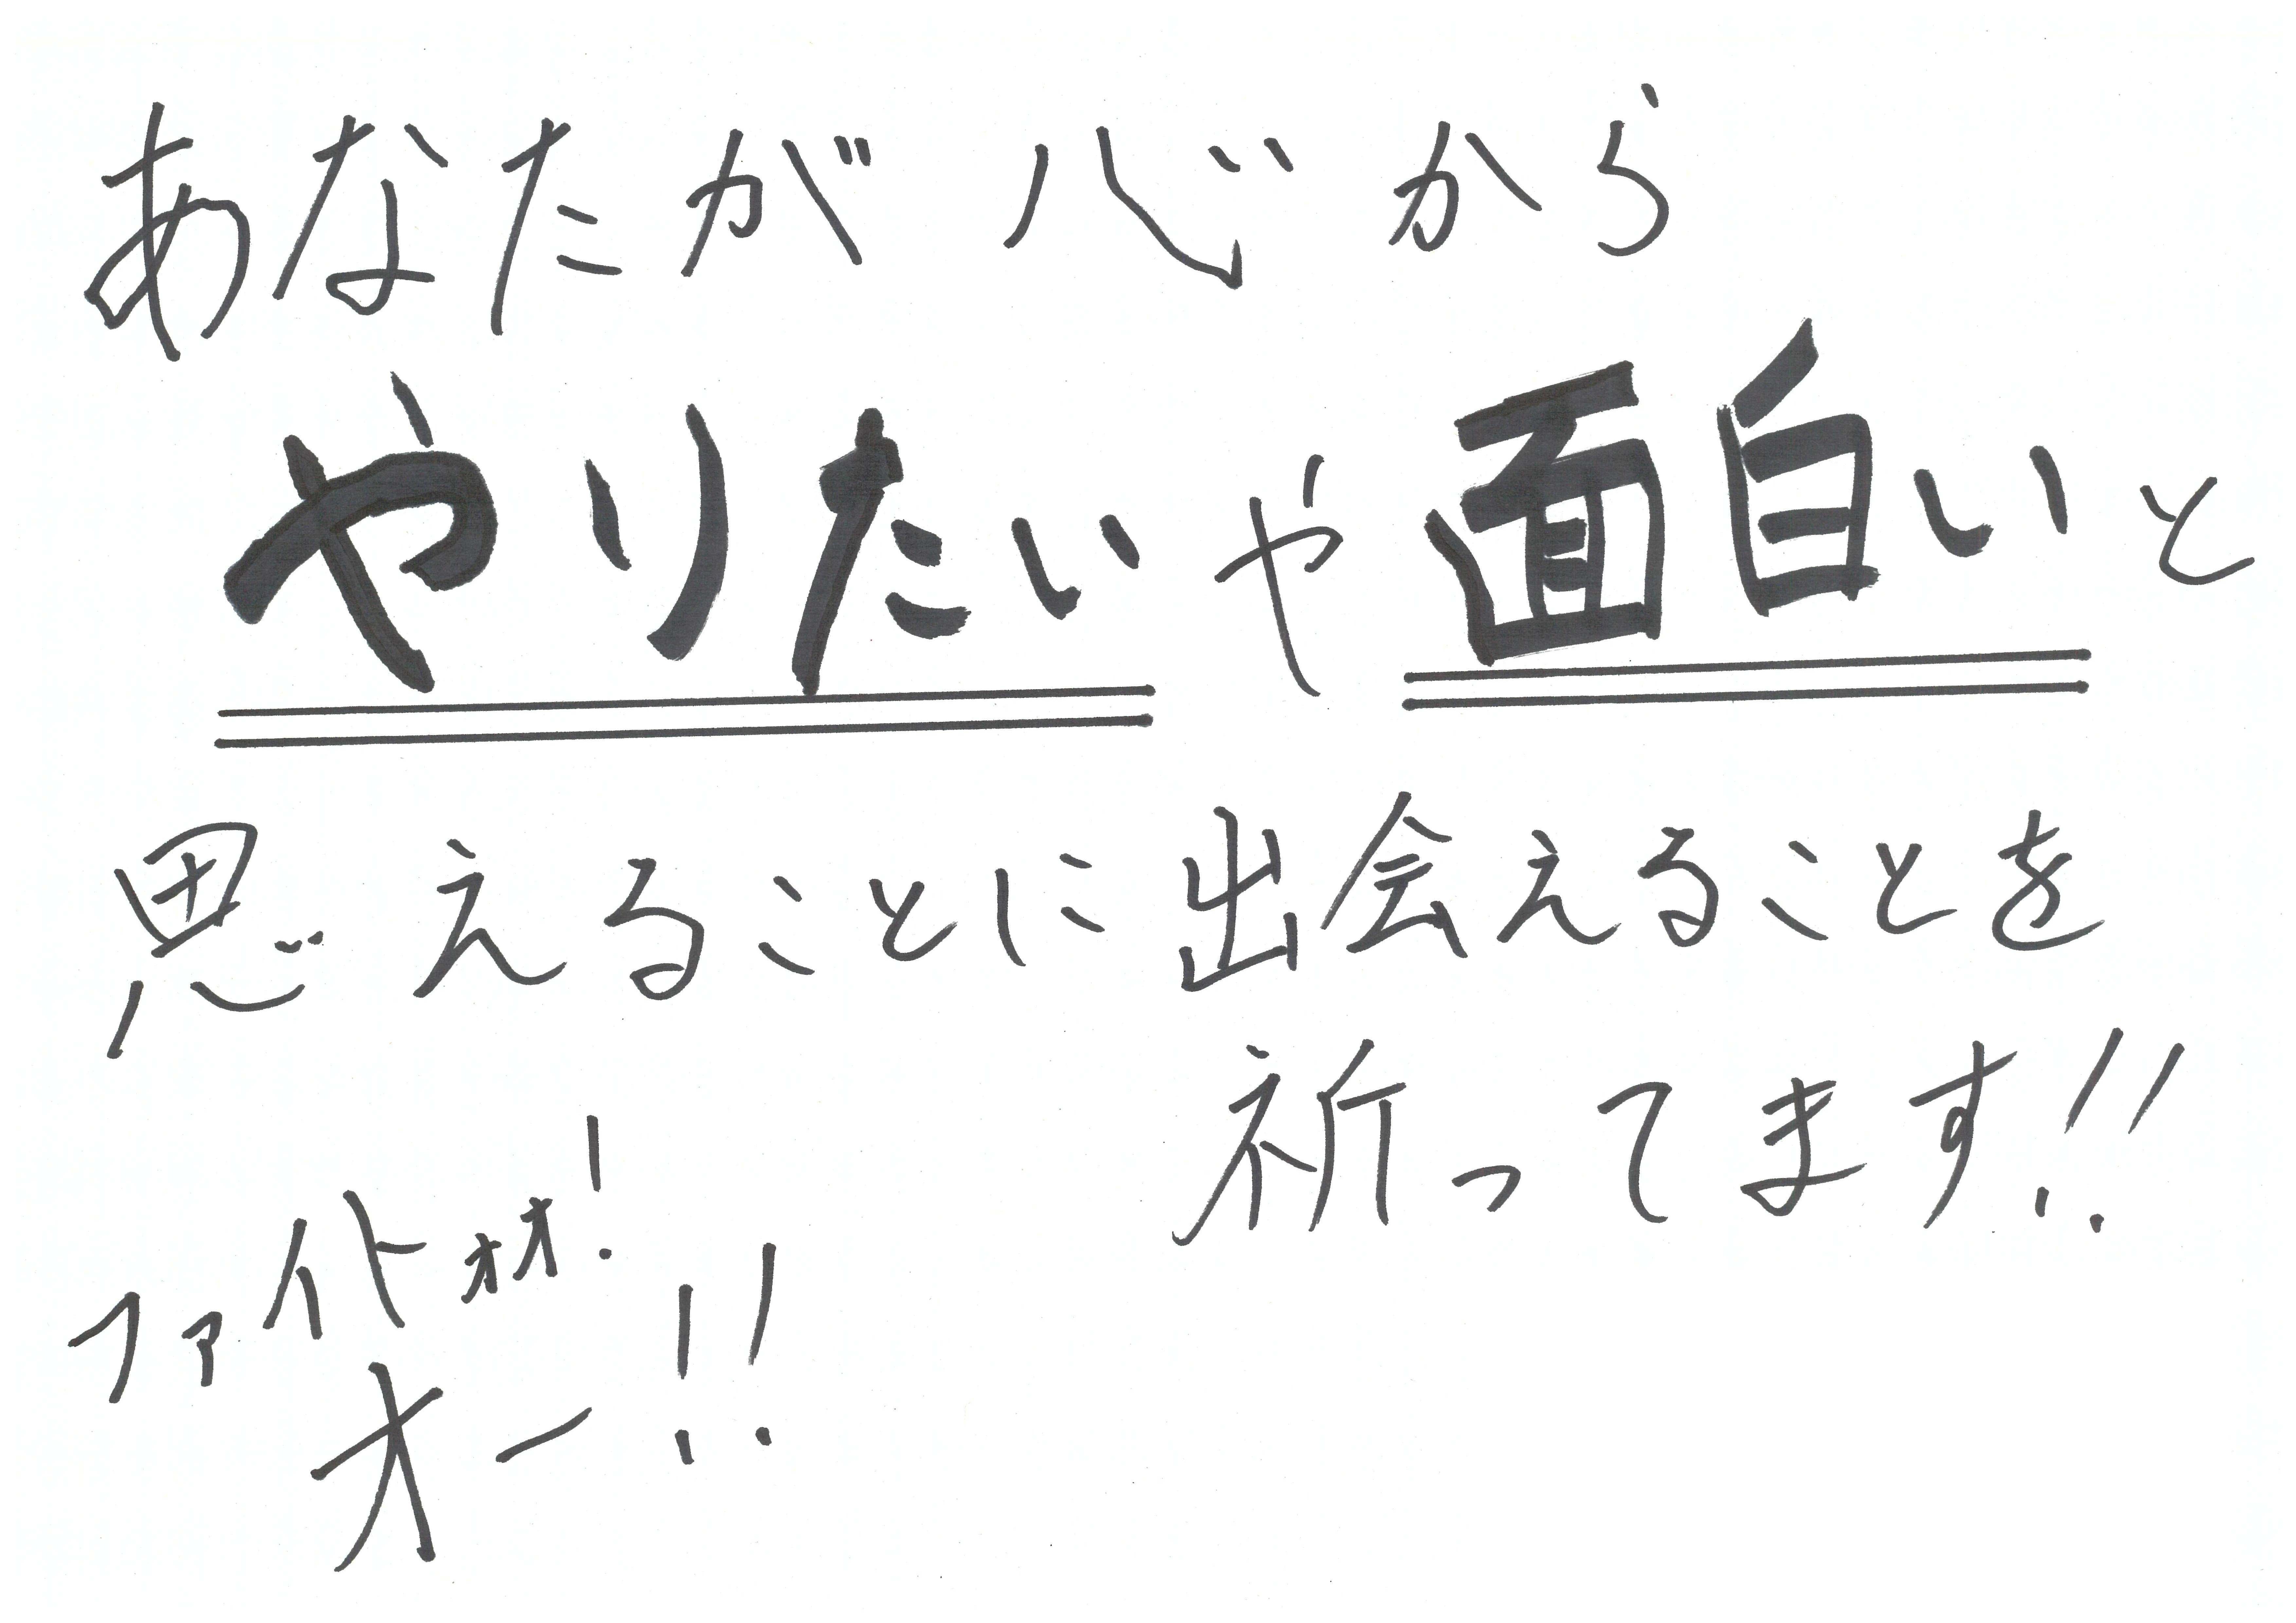 あなたが心から
やりたいや面白いと
思えることに出会えることを
祈ってます!!
ファイトォオ!
オー!!